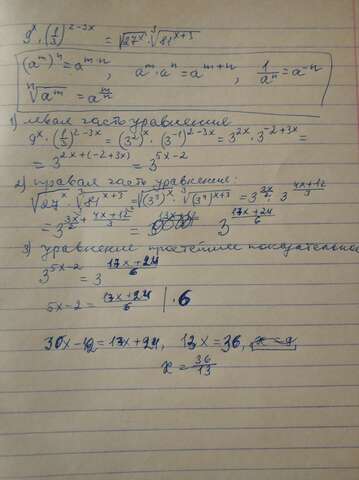 9^x · (1/3)^{2-3x} = √27^x · ∛81^{x+3}
(a^m)^n = a^{m·n}, a^m · a^n = a^{m+n}, 1/a^n = a^{-n}
ⁿ√a^m = a^{m/n}
1) левая часть уравнения
9^x · (1/3)^{2-3x} = (3^2)^x · (3^{-1})^{2-3x} = 3^{2x} · 3^{-2+3x} =
= 3^{2x+(-2+3x)} = 3^{5x-2}
2) правая часть уравнения:
√27^x · ∛81^{x+3} = √(3^3)^x · ∛(3^4)^{x+3} = 3^{3x/2} · 3^{4x+12/3}
= 3^{3x/2 + 4x+12/3} = 3^{17x+24/6}
3) уравнение простейшее показательное
3^{5x-2} = 3^{17x+24/6}
5x-2 = 17x+24/6 | · 6
30x-12 = 17x+24, 13x = 36,
x = 36/13